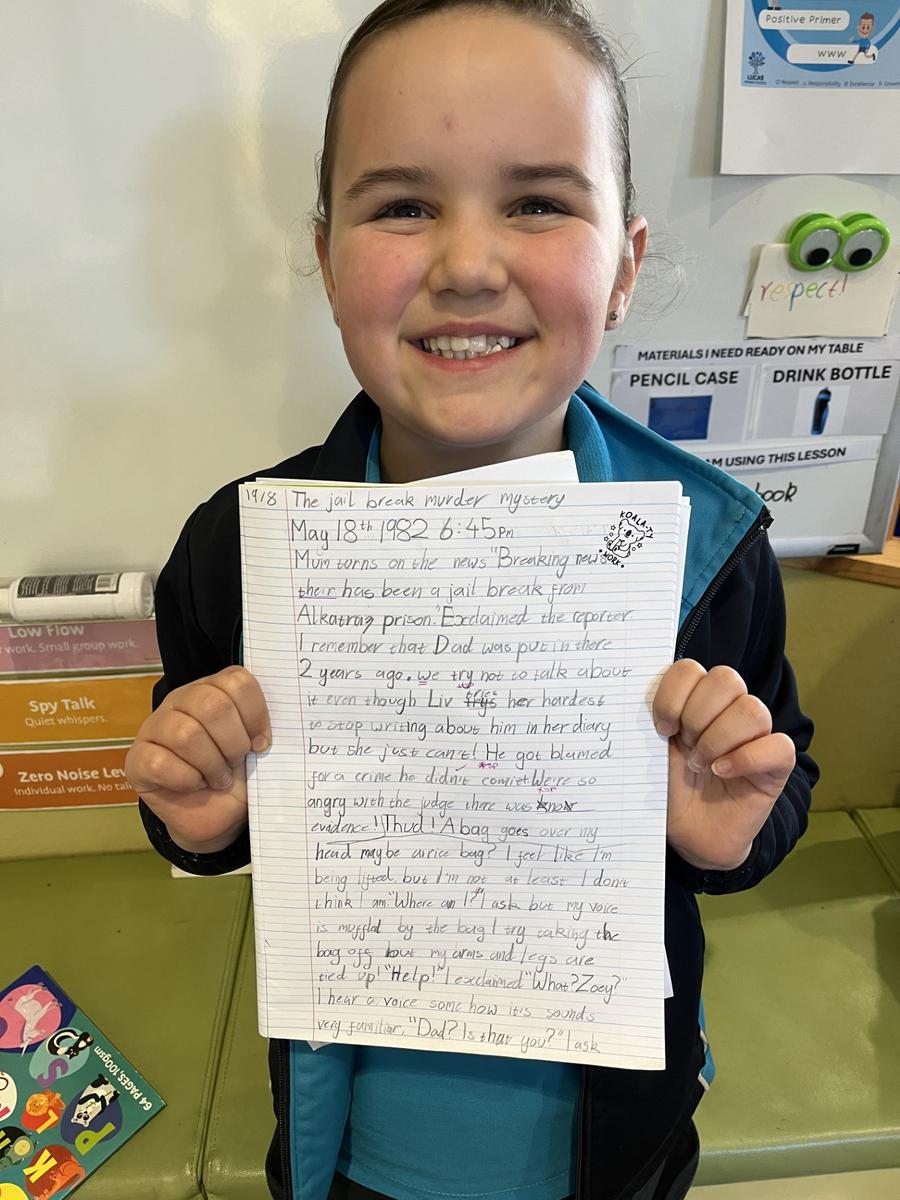 Positive Primer
WWW
LUCAS
Respect
Responsibility
Excellence
respect!
MATERIALS I NEED READY ON MY TABLE
PENCIL CASE
DRINK BOTTLE
AM USING THIS LESSON
book
19/8
The jail break murder mystery
KOALA-TY
WORK.
May 18th 1982 6:45pm
Mum torns on the news "Breaking news
their has been a jail break from
Alkatraz prison." Exclaimed the reporter.
I remember that Dad was put in there
2 years ago. we try not to talk about
it even though Liv trys tries her hardest
to stop writing about him in her diary
but she just can't! He got blamed
for a crime he didn't comitt. We're so
angry with the judge there was
evidence! Thud! A bag goes over my
head maybe a rice bag? I feel like I'm
being lifted, but I'm not at least I don't
think I am. "Where am I?" I ask but my voice
is muffled by the bag I try taking the
bag off but my arms and legs are
tied up! "Help!" I exclaimed "What? Zoey?"
I hear a voice some how it's sounds
very familiar. "Dad? Is that you?" I ask
Low Flow
work. Small group work.
Spy Talk
Quiet whispers.
Zero Noise Lev
Individual work. No tal
64 PAGES, 100gsm
S
P
L
K